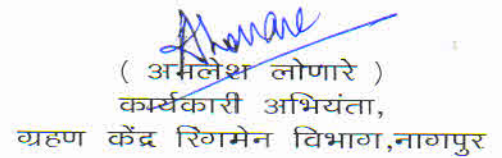 ( अमलेश लोणारे )
कार्यकारी अभियंता,
ग्रहण केंद्र रिंगमेन विभाग,नागपुर